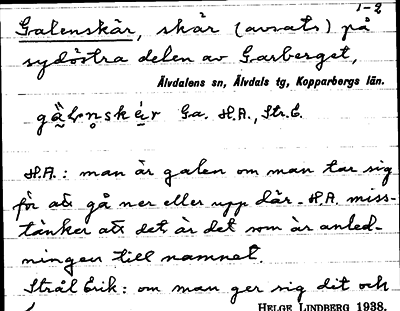 1-2
Galenskär, skär (avsats) på
sydöstra delen av Garberget,
Älvdalens sn, Älvdals tg, Kopparbergs län.
Ga. H.A., Str.E.
H.A.: man är galen om man tar sig
för att gå ner eller upp där. H.A. miss-
tänker att det är det som är anled-
ningen till namnet.
Strål Erik: om man ger sig dit och
HELGE LINDBERG 1938.